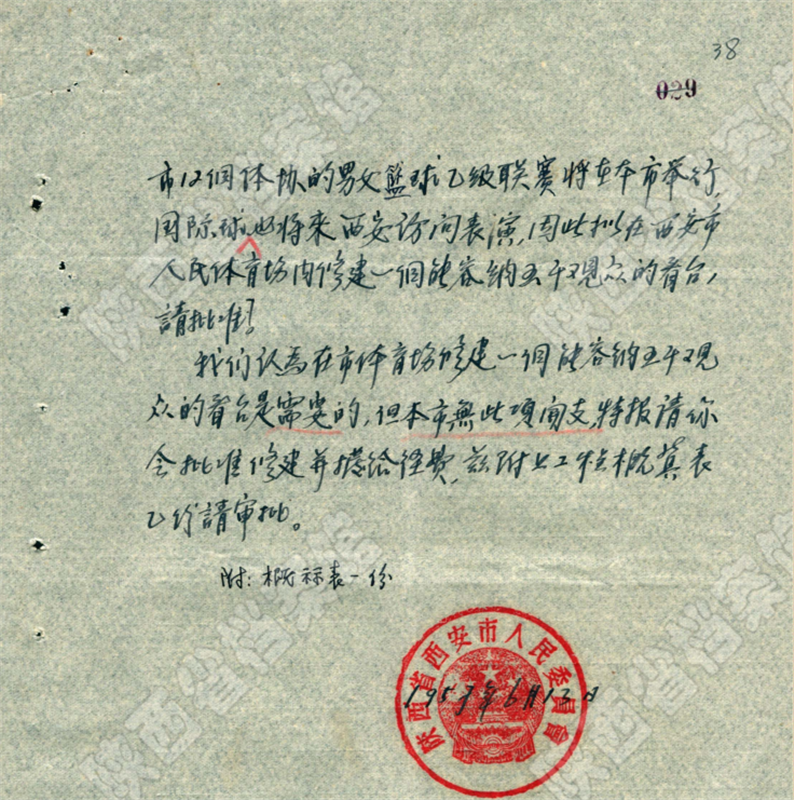 38
029
市12個体协的男女籃球乙级联赛将在本市举行,
国际球也将来西安访问表演,因此拟在西安市
人民体育场内修建一個能容纳五千观众的看台,
請批准!
我们认為在市体育场修建一個能容纳五千观
众的看台是需要的,但本市無此項開支,特报請你
会批准修建并撥给经费,兹附上工程概算表
乙份請审批。
附:概算表一份
陕西省西安市人民委員會
1957年6月13日
陕西省档案馆
陕西省档案馆
陕西省档案馆
陕西省档案馆